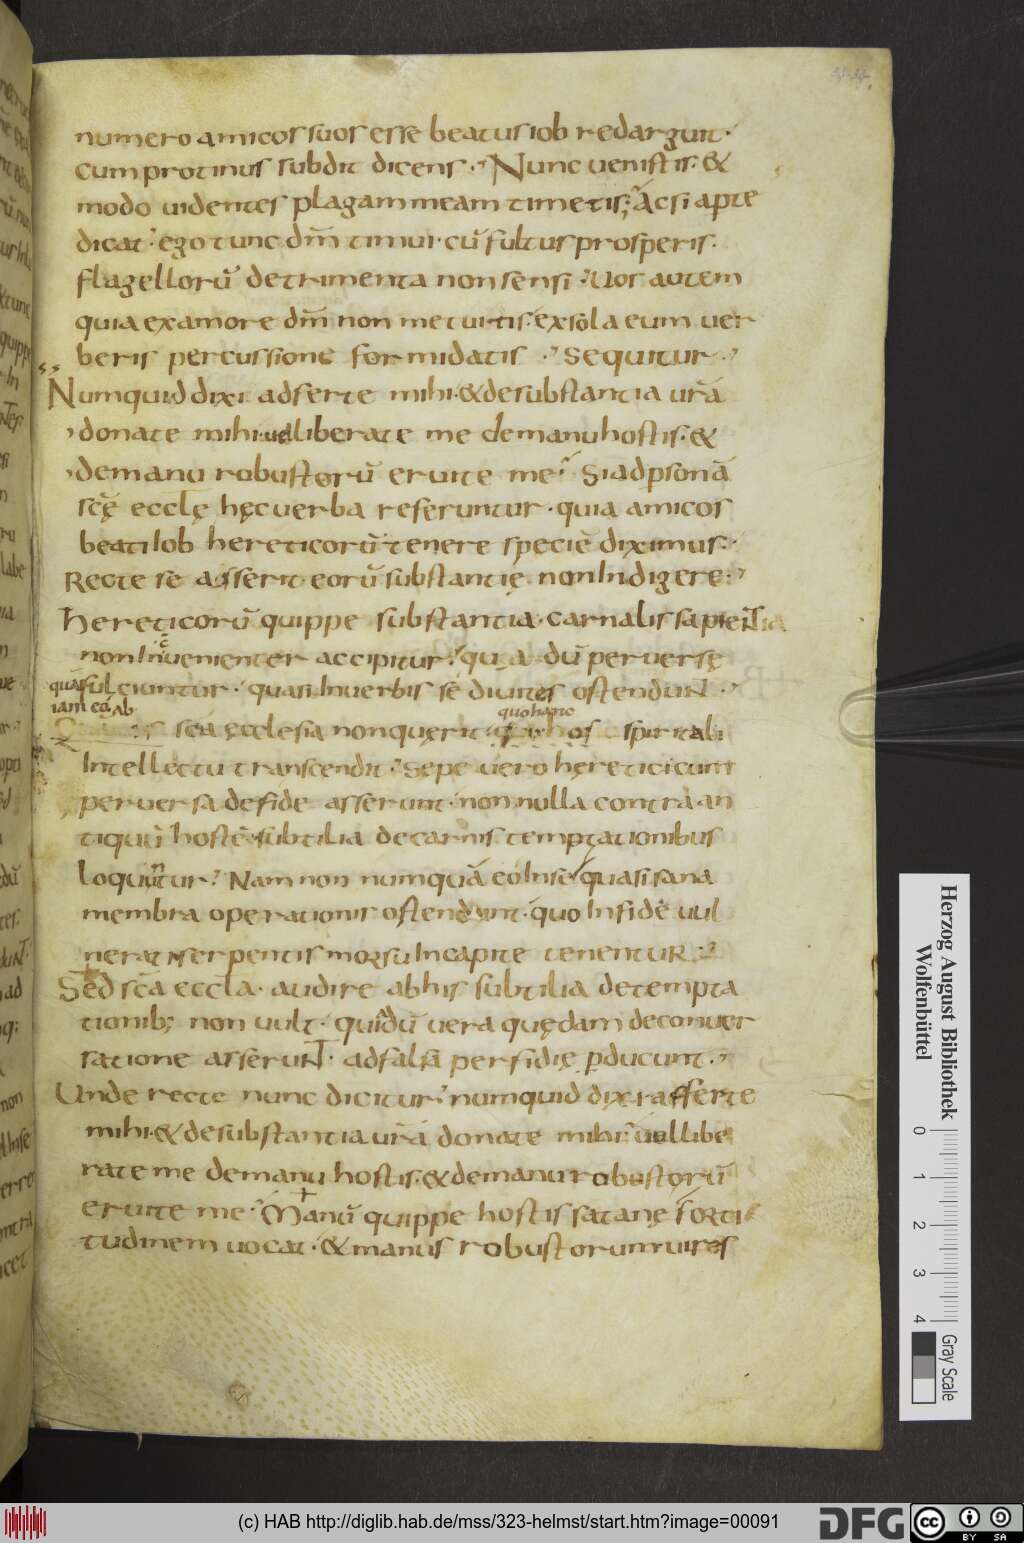 numero amicos suos esse beatus iob redarguit·
cum protinus subdit dicens·" Nunc uenistis·&
modo uidentes plagam meam timetis; Ac si apte
dicat· ego tunc dm̄ timui· cū fultus prosperis·
flagellorū detrimenta non sensi· Uos autem
quia ex amore dm̄ non metuitis· ex sola eum uer
beris percussione formidatis· Sequitur·
Numquid dixi adferte mihi·& de substantia ur̄ā
donate mihi· uel liberate me de manu hostis·&
de manu robustorū eruite me· Si ad psonā
scę̄ eccl̄ę hęc uerba referuntur· quia amicos
beati Iob hereticorū tenere speciē diximus·
Recte se asserit eorū substantię non Indigere·
hereticorū quippe substantia· carnalis sapientia
non Inuenienter accipitur· quia dū peruersę
quā fulciuntur· quasi In uerbis se diuites ostendunt·
iam eā Ab quo hanc
sca ęcclesia non quęrit hos spiritali
Intellectu transcendit· Sepe uero hęretici cum
peruersa de fide asserunt· non nulla contra an
tiquū hostē subtilia de carnis temptationibus
loquuntur· Nam non numquā eo Inse quasi sana
membra operationis ostendunt· quo In fide uul
nerati serpentis morsu In capite tenentur·
Sed sc̄a eccl̄a· audire ab his subtilia de tempta
tionib; non uult· qui dū uera quędam de conuer
satione asserunt· ad falsa perfidię pducunt·
Unde recte nunc dicitur· numquid dixi afferte
mihi·& de substantia ur̄a donate mihi· uel libe
rate me de manu hostis·& de manu robustorū
eruite me· Manū quippe hostis satanę forti
tudinem uocat·& manus robustorum uires
Herzog August Bibliothek
Wolfenbüttel
0 1 2 3 4
Gray Scale
(c) HAB http://diglib.hab.de/mss/323-helmst/start.htm?image=00091
DFG
cc BY SA